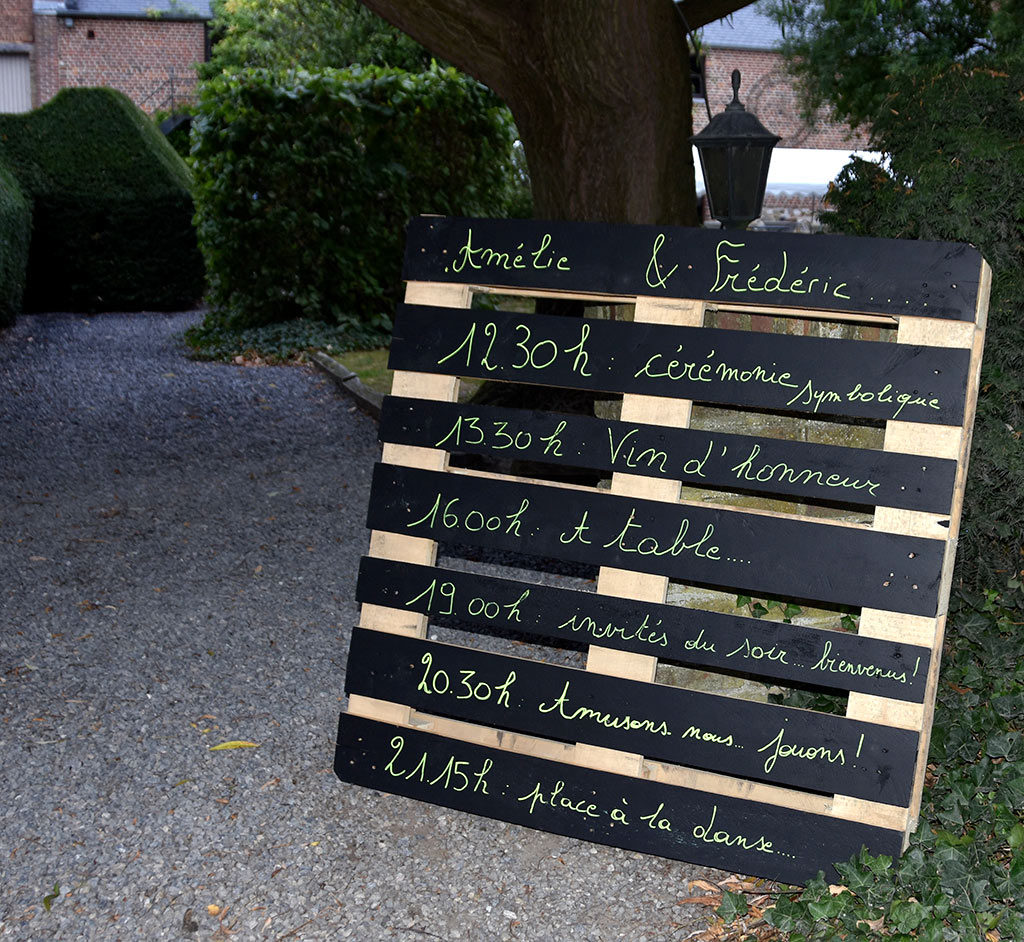 Amélie & Frédéric ....
12.30h : cérémonie symbolique
13.30h : Vin d'honneur
16.00h : A table....
19.00h : invités du soir... bienvenus!
20.30h : Amusons. nous... Jouons!
21.15h : place à la danse....